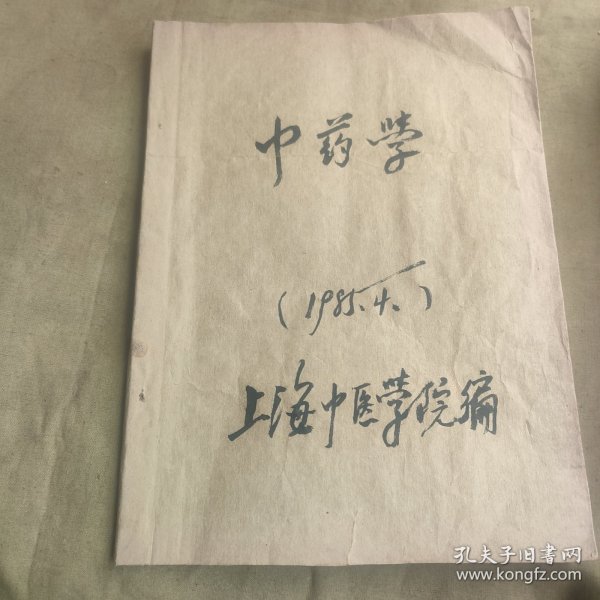 中药学
(1985.4.)
上海中医学院编
孔夫子旧书网
www.kongfz.com